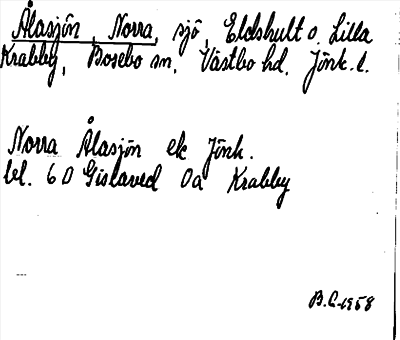 Ålasjön, Norra, sjö, Eldshult o. Lilla
Krabby, Bosebo sn. Västbo hd. Jönk. l.
Norra Ålasjön ek Jönk.
bl. 6 D Gislaved 0a Krabby
B.C. 1958